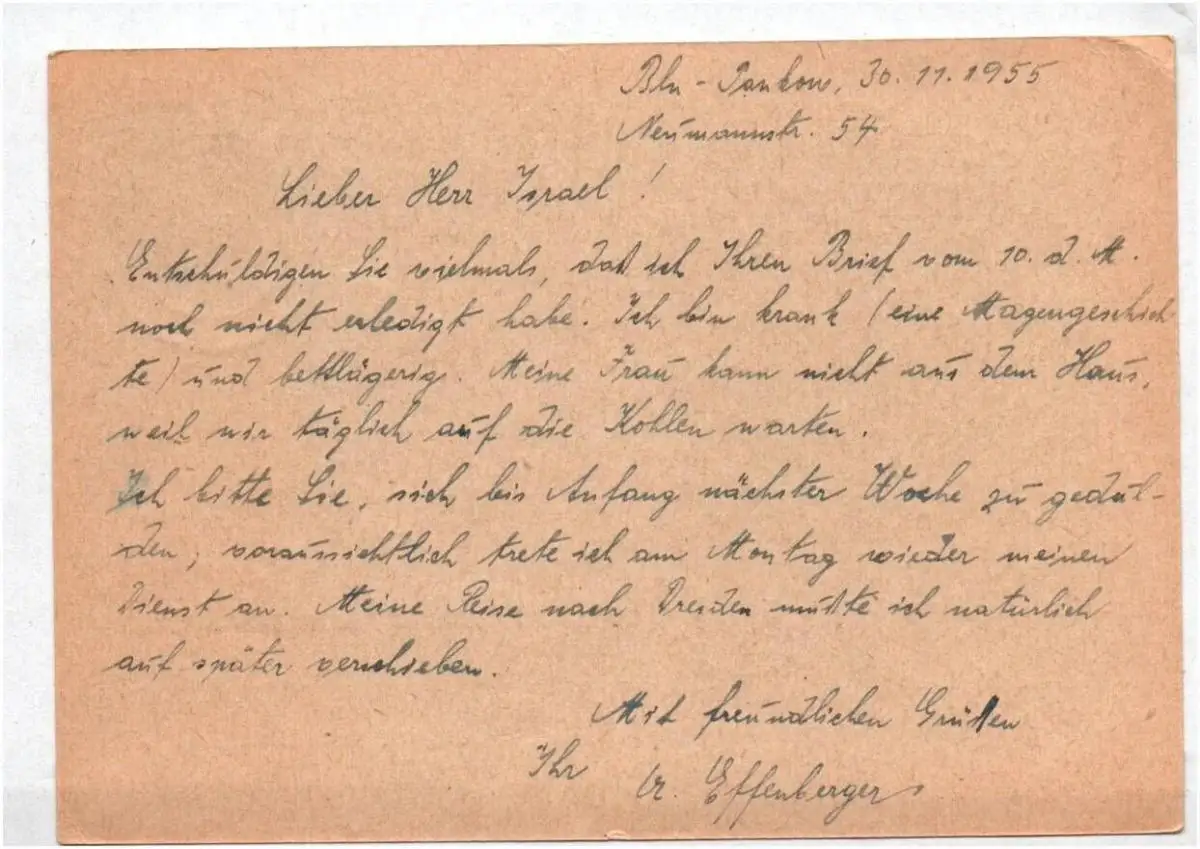 Bln - Pankow, 30.11.1955
Neumannstr. 54
Lieber Herr Israel!
Entschuldigen Sie vielmals, daß ich Ihren Brief vom 10. d. M.
noch nicht erledigt habe. Ich bin krank (eine Magengeschich-
te) und bettlägerig. Meine Frau kann nicht aus dem Haus,
weil wir täglich auf die Kohlen warten.
Ich bitte Sie, sich bis Anfang nächster Woche zu gedul-
den, voraussichtlich trete ich am Montag wieder meinen
Dienst an. Meine Reise nach Dresden mußte ich natürlich
auf später verschieben.
Mit freundlichen Grüßen
Ihr
Effenberger